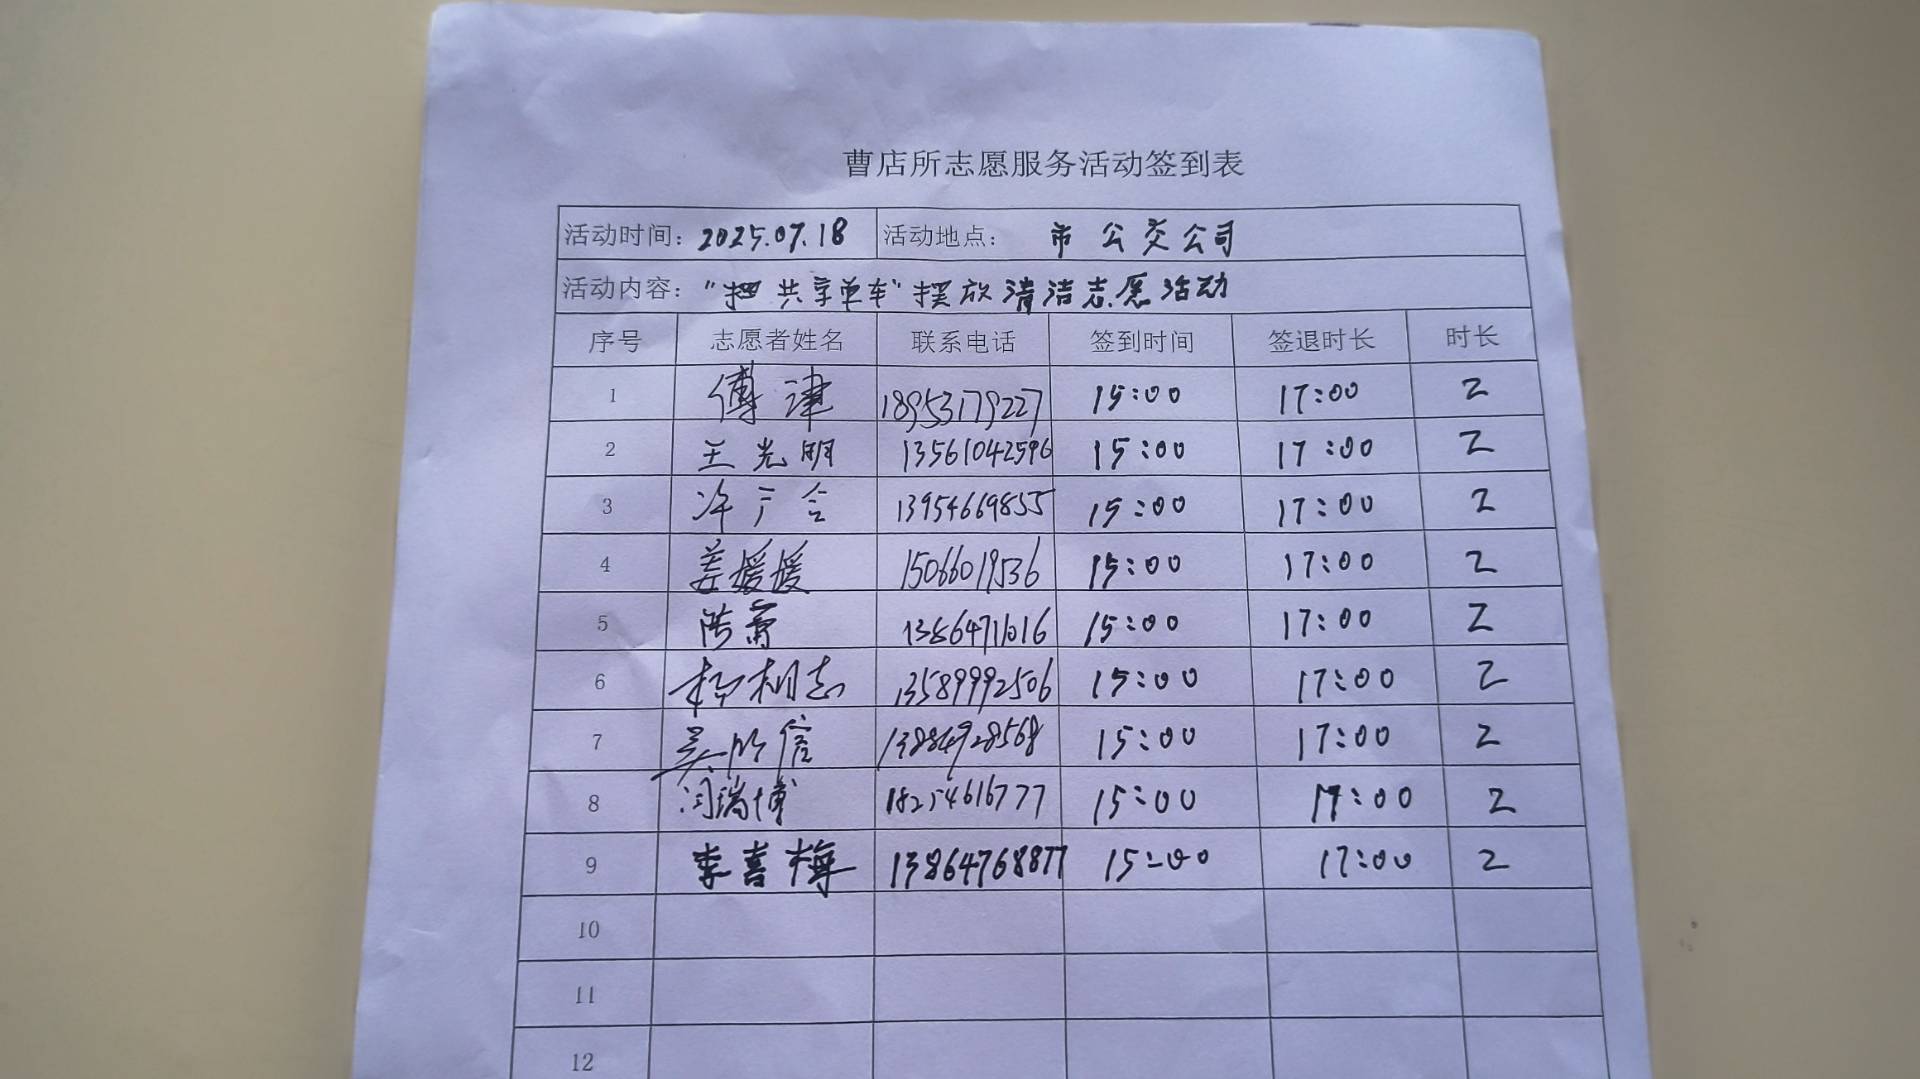 曹店所志愿服务活动签到表
活动时间: 2025.07.18 活动地点: 市公交公司
活动内容: "把共享单车"摆放清洁志愿活动
序号 志愿者姓名 联系电话 签到时间 签退时长 时长
1 傅津 18953179227 15:00 17:00 2
2 王光明 13561042596 15:00 17:00 2
3 13954669855 15:00 17:00 2
4 姜媛媛 15066019536 15:00 17:00 2
5 13864711016 15:00 17:00 2
6 13589992506 15:00 17:00 2
7 13884928568 15:00 17:00 2
8 闫瑞博 18254616777 15:00 17:00 2
9 李喜梅 13864768877 15:00 17:00 2
10
11
12